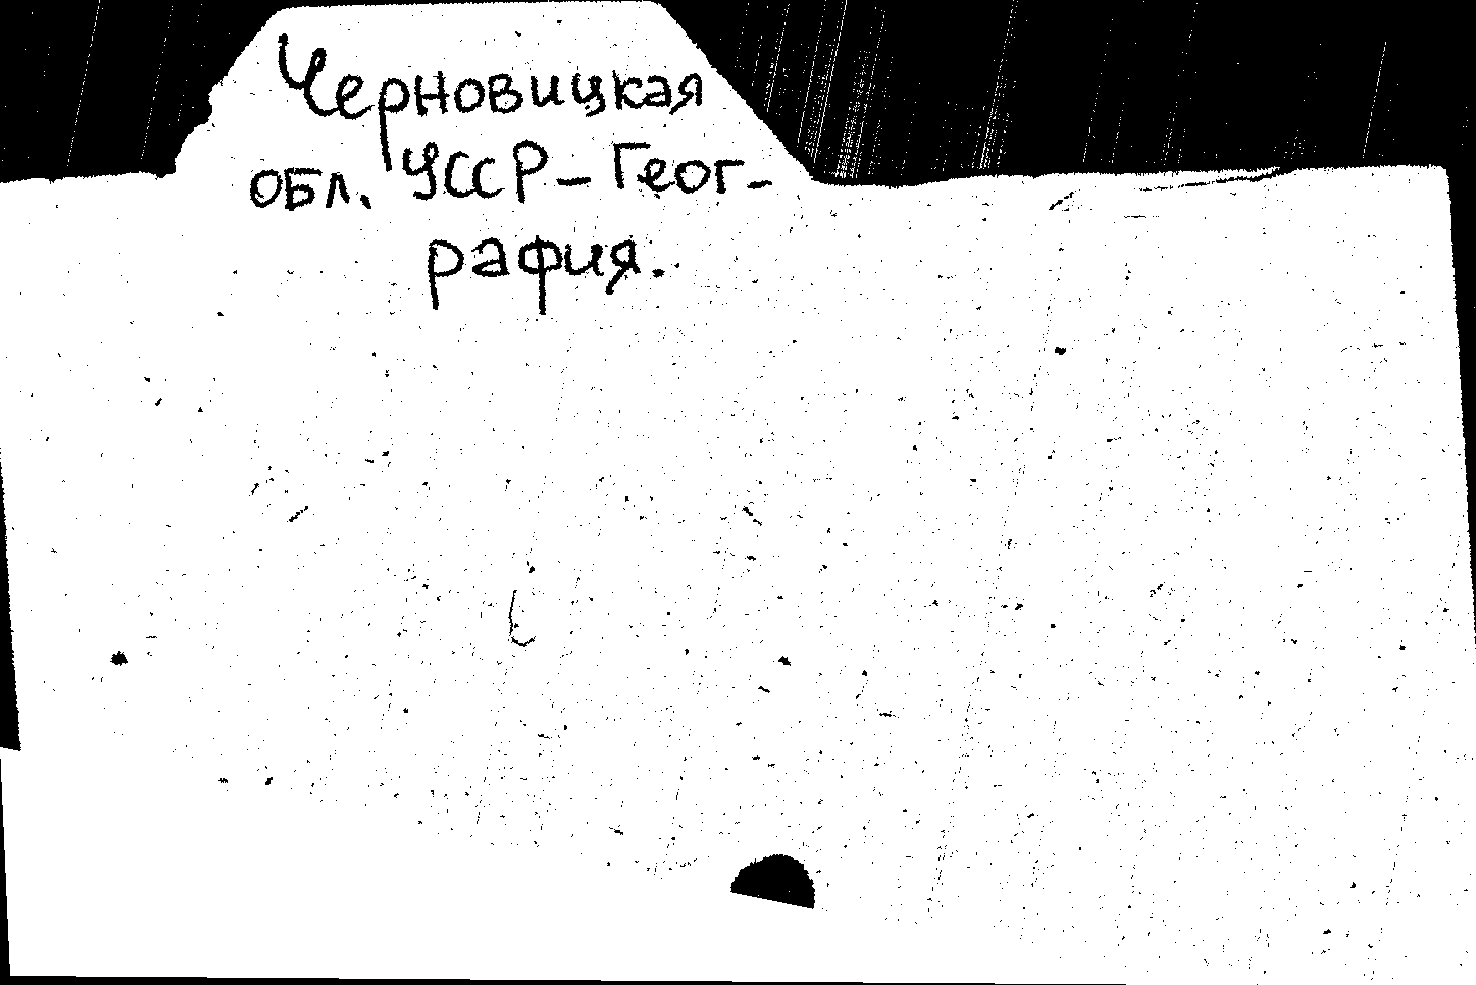 Черновицкая
обл. УССР – Геог-
рафия.